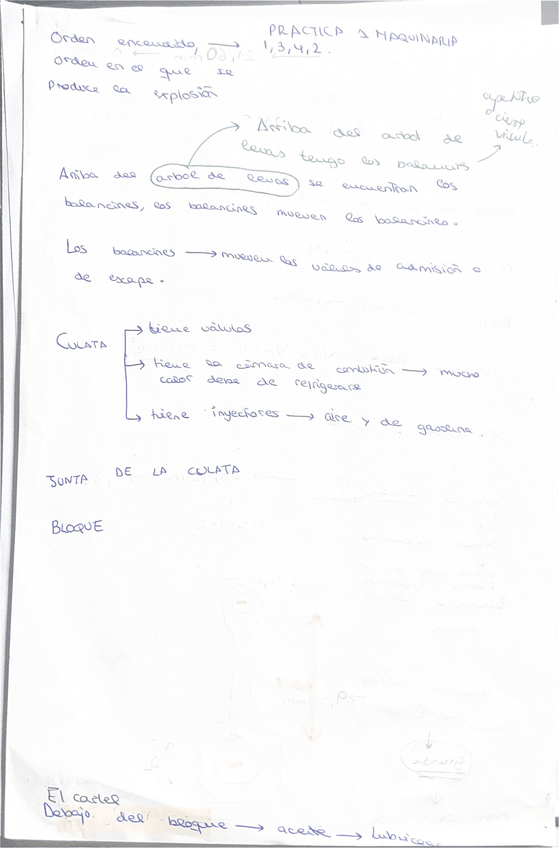 PRACTICA 1 MAQUINARIA
Orden encendido, → 1,3,4,2.
orden en el que se
Produce la explosión
apertura
o cierre
Arriba del arbol de
levas tengo los balancines
Arriba del arbol de levas se encuentran los
balancines, los balancines mueven los balancines.
Los balancines → mueven las válvulas de admisión o
de escape.
CULATA
→ tiene válvulas
→ tiene la cámara de combustión → mucho
calor debe de refrigerarse
→ tiene inyectores → aire y de gasolina.
JUNTA DE LA CULATA
BLOQUE
El cartel
Debajo del bloque → aceite → Lubricar